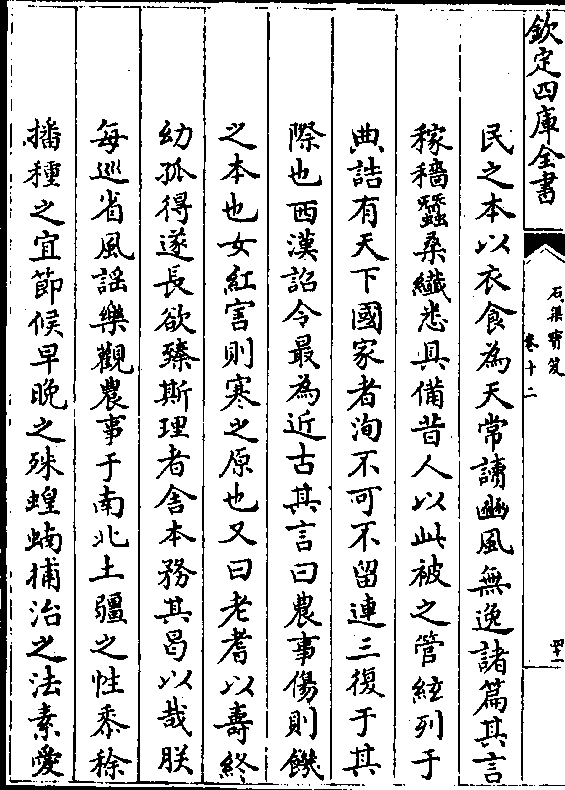 欽定四庫全書
石渠寳笈
卷十二
四十一
民之本以衣食為天常讀豳風無逸諸篇其言
稼穡蠶桑纎悉具備昔人以此被之管絃列于
典誥有天下國家者洵不可不留連三復于其
際也西漢詔令最為近古其言曰農事傷則饑
之本也女紅害則寒之原也又曰老耆以壽終
幼孤得遂長欲臻斯理者舍本務其曷以哉朕
每巡省風謡樂觀農事于南北土疆之性黍稌
播種之宜節候早晚之殊蝗蝻捕治之法素愛